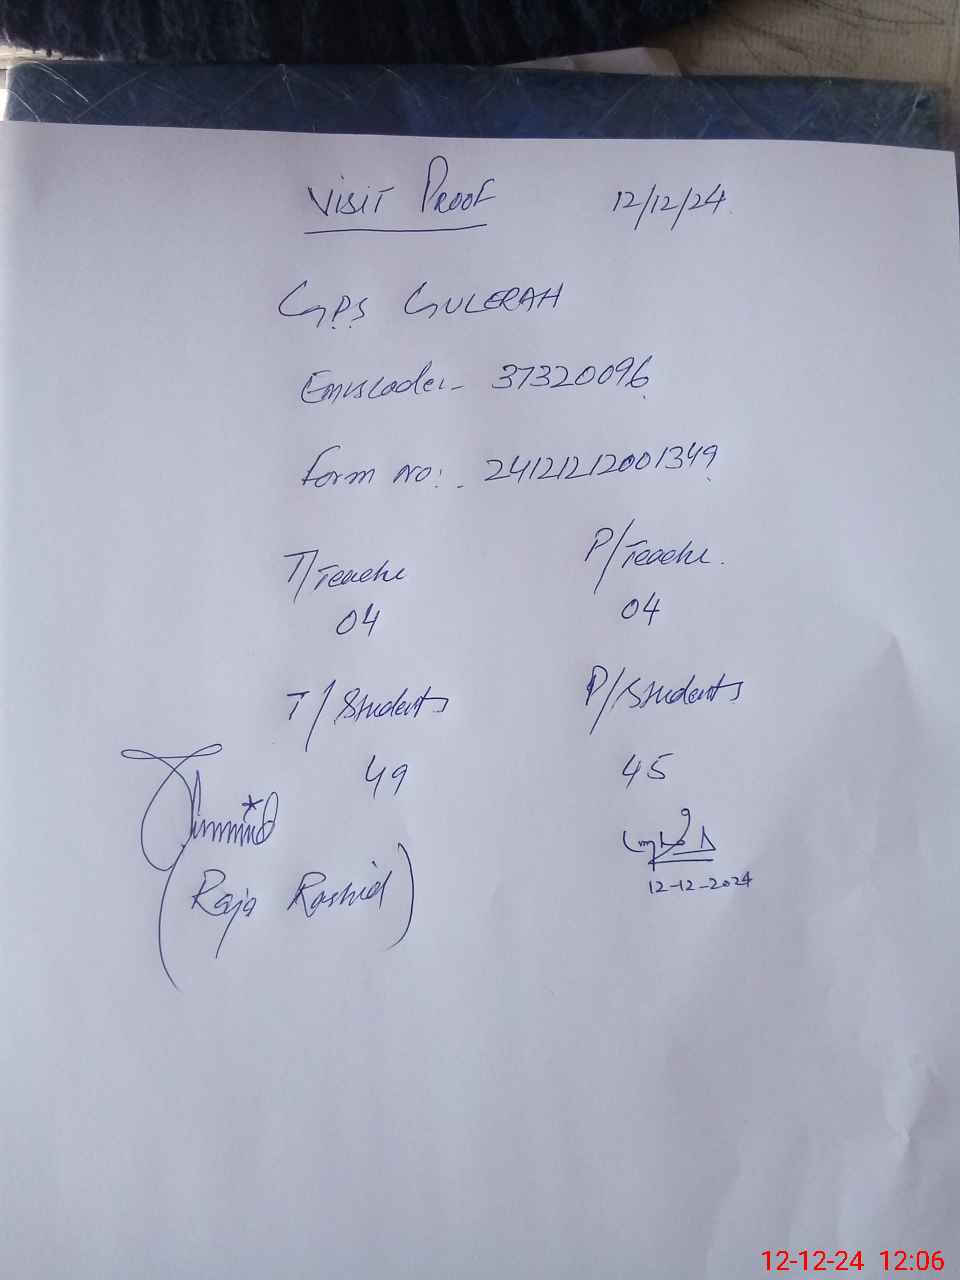 Visit Proof 12/12/24
GPS GULERAH
Emiscode:- 37320096
Form no: - 24121212001349
T/Teache P/Teache.
04 04
T/Students P/Students
49 45
(Raja Rashid)
12-12-2024
12-12-24 12:06